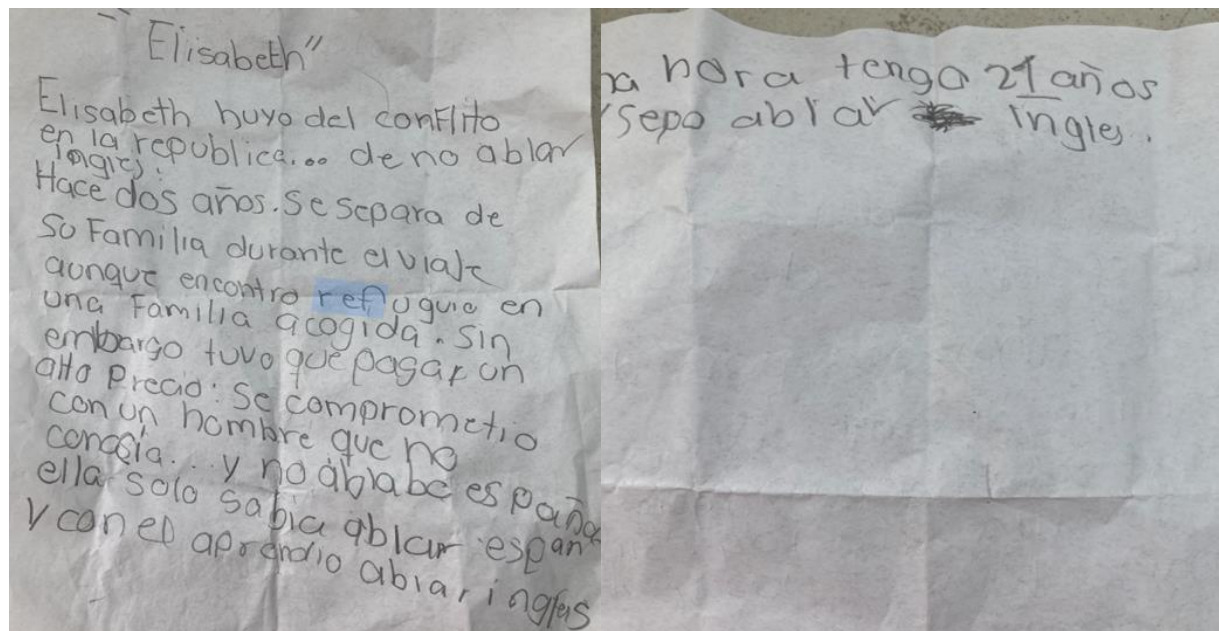 Elisabeth"
Elisabeth huyo del conflito
en la republica... de no ablar
ingles.
Hace dos años. Se separa de
Su Familia durante el viaje
aunque encontro refuguio en
una Familia acogida. Sin
embargo tuvo que pagar un
alto Precio: Se comprometio
con un hombre que no
conocia... y no ablabe español
ella solo sabia ablar españ
y con el aprendio ablar ingles
a hora tengo 21 años
y sepo ablar ingles.